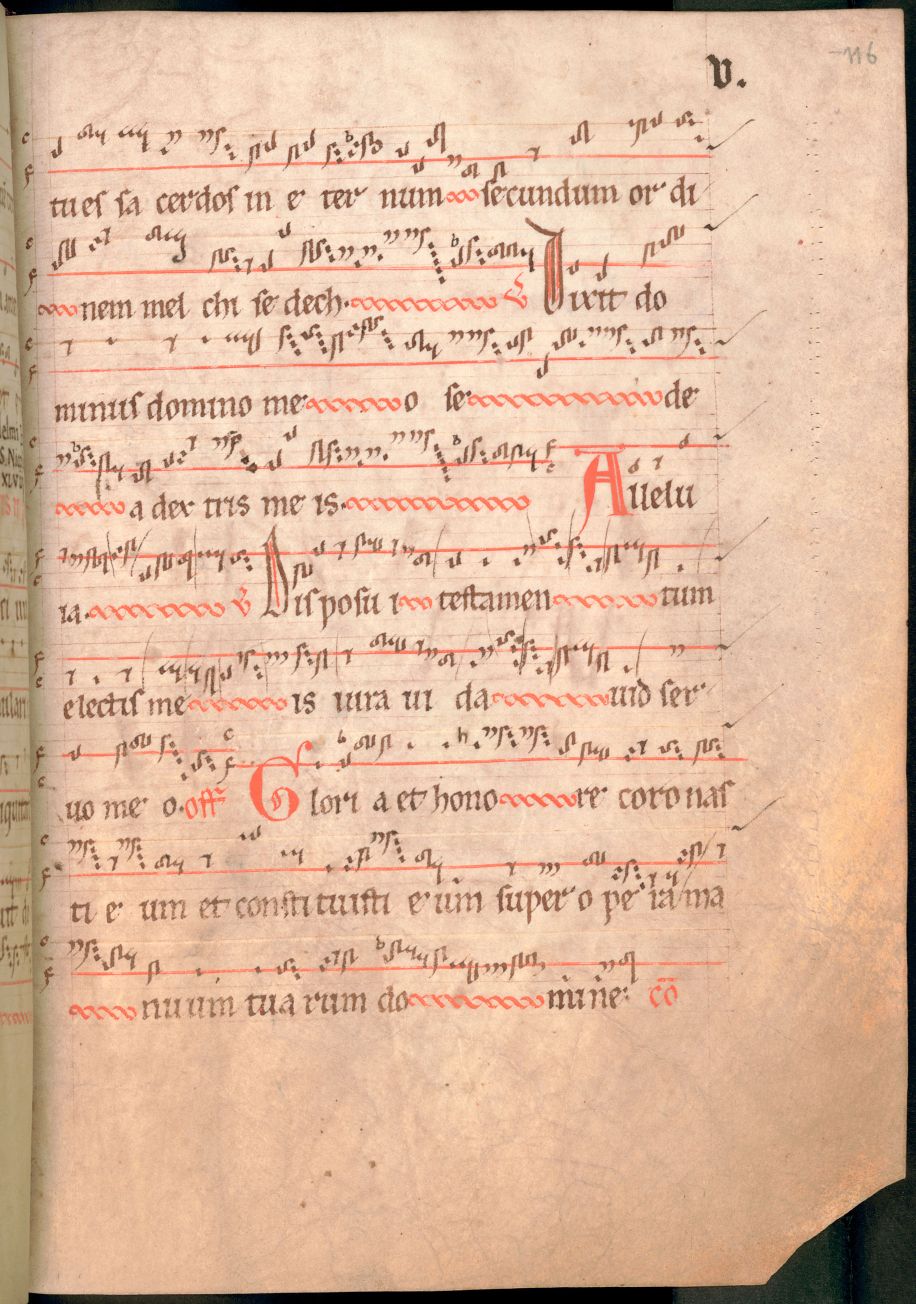 v.
116
tu es sa cerdos in e ter num secundum or di
nem mel chi se dech. ℣ Dixit do
minus domino me o se de
a dex tris me is. Allelu
ia. ℣ Disposu i testamen tum
electis me is iura ui da uid ser
uo me o. off̄ Glori a et hono re coronas
ti e um et consti tuisti e um super o pe ra ma
nuum tua rum do mine. cō